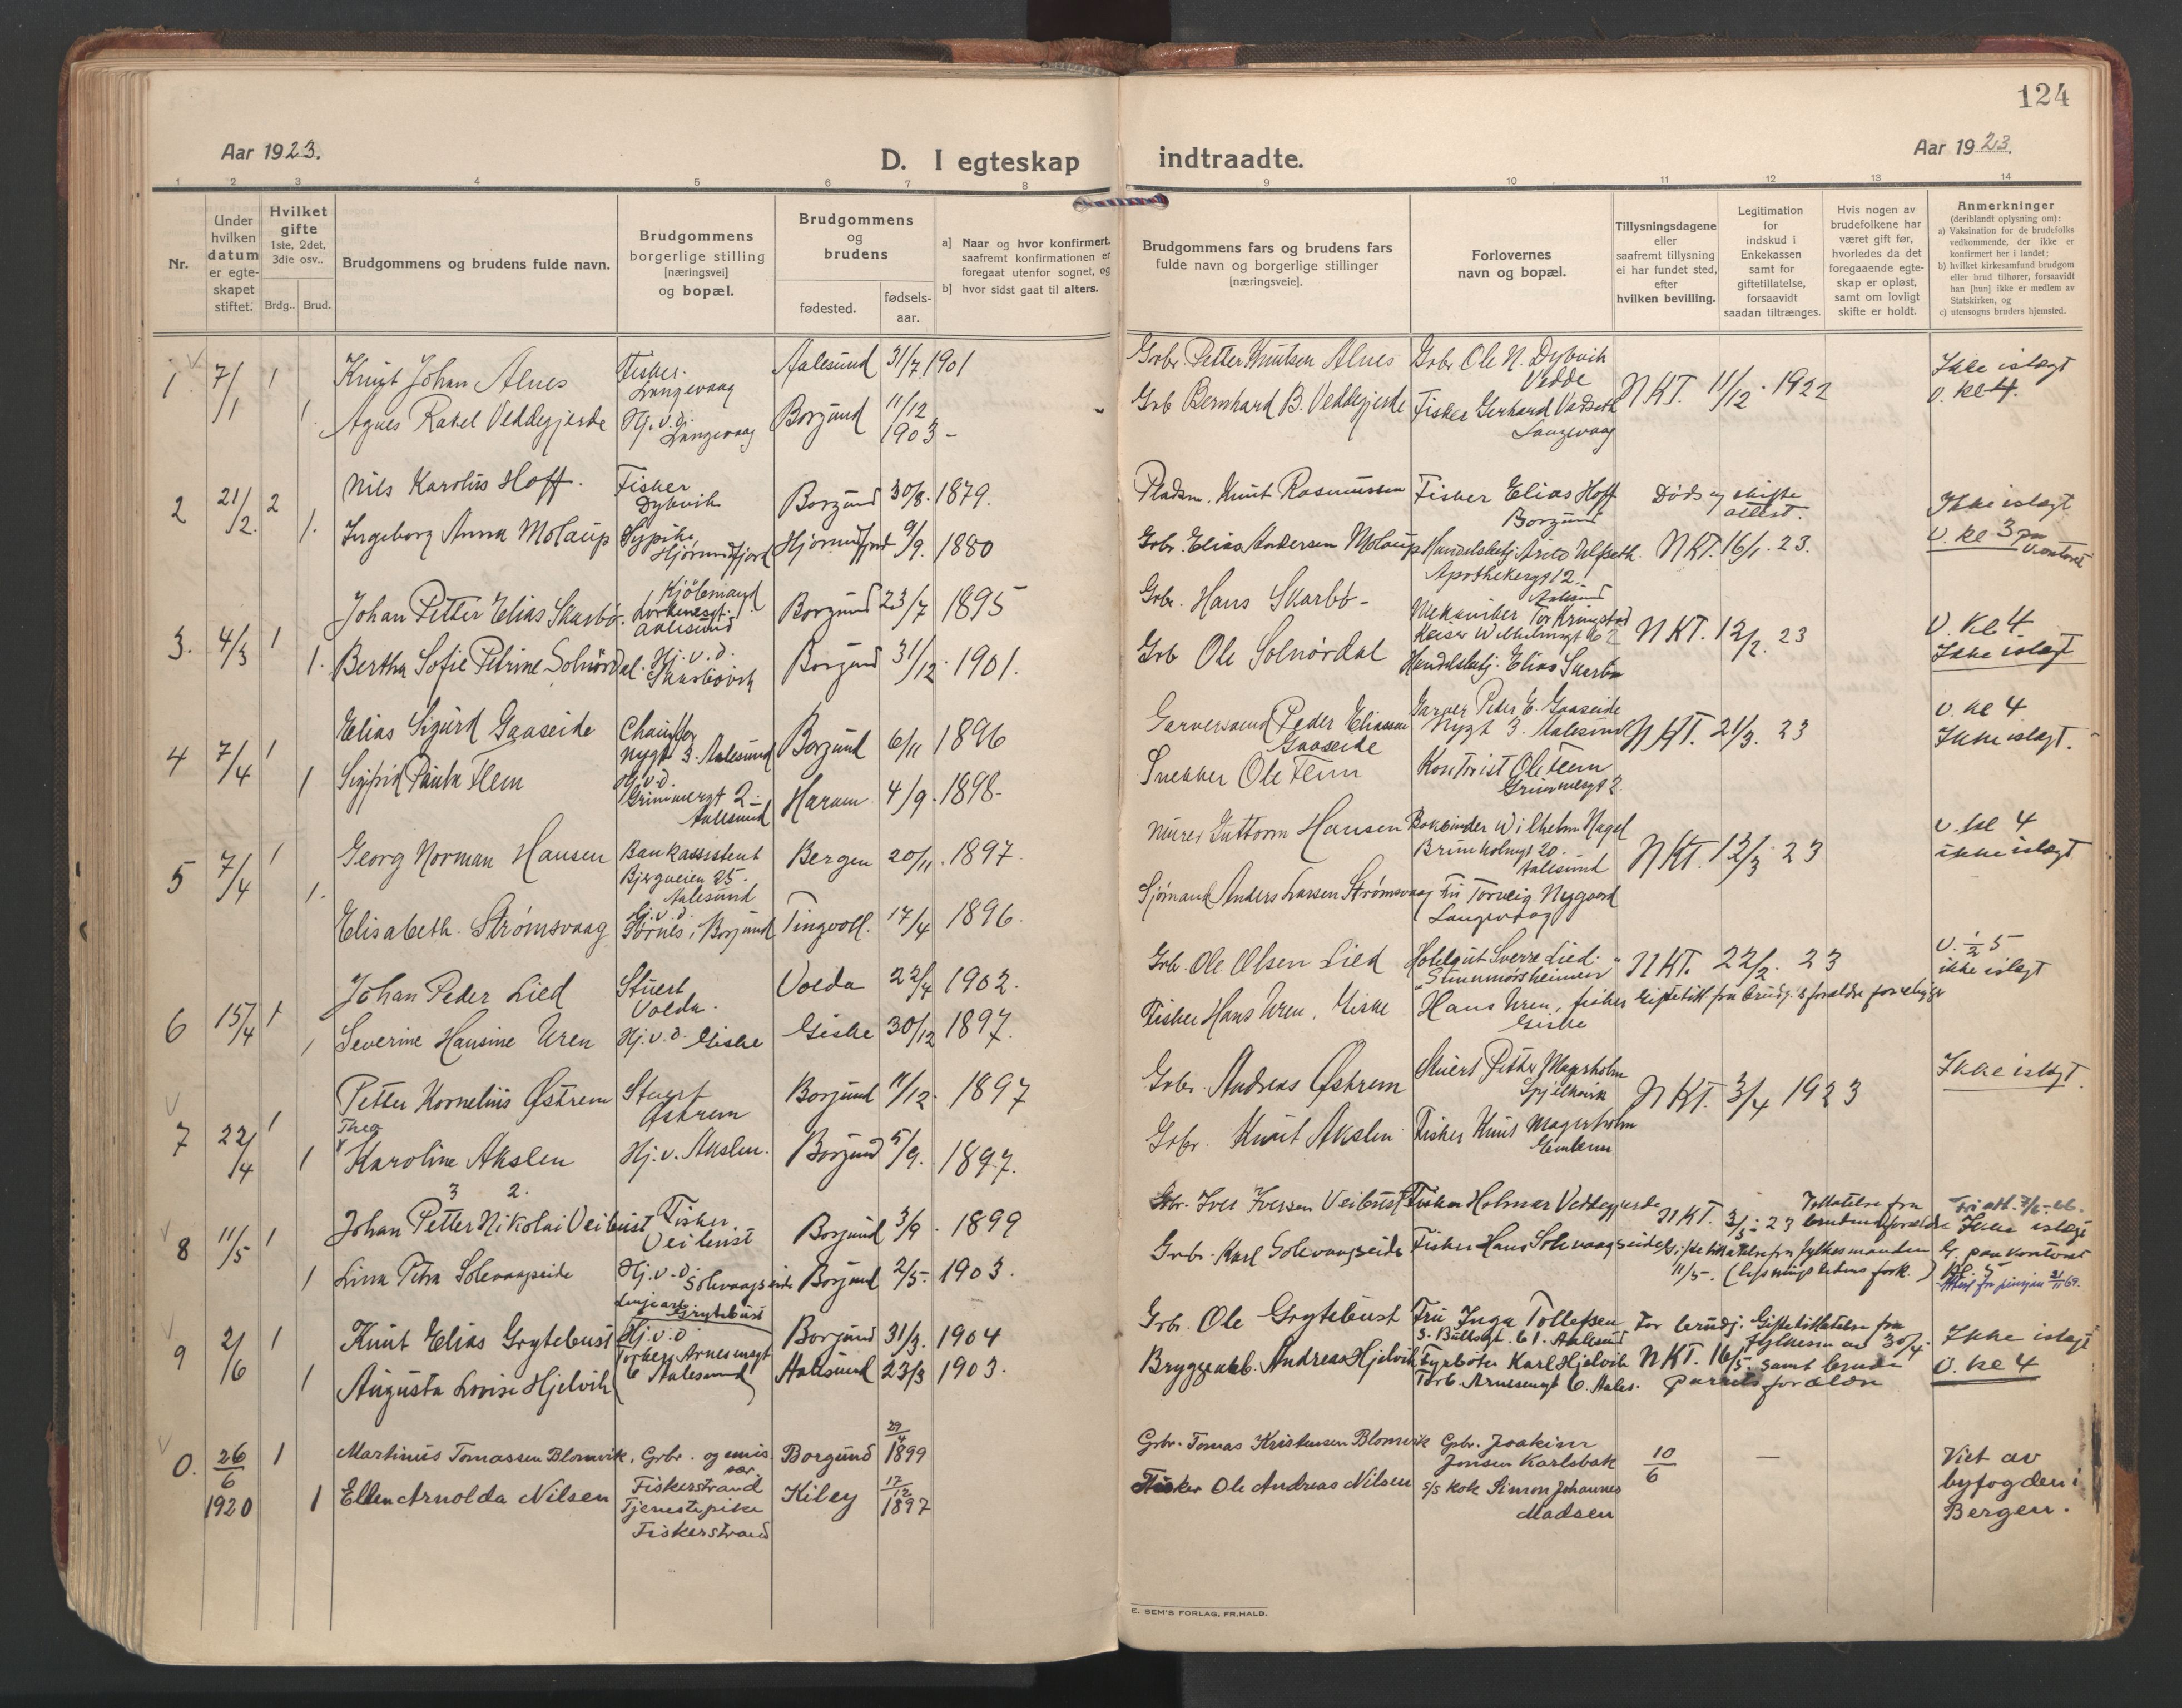 124
Aar 1923.
D. I egteskap indtraadte.
Aar 1923.
1 2 3 4 5 6 7 8 9 10 11 12 13 14
Nr.
Under hvilken datum er egte-skapet stiftet.
Hvilket gifte 1ste, 2det, 3die osv..
Brdg.. Brud.
Brudgommens og brudens fulde navn.
Brudgommens borgerlige stilling [næringsvei] og bopæl.
Brudgommens og brudens
fødested.
fødsels-aar.
a] Naar og hvor konfirmert, saafremt konfirmationen er foregaat utenfor sognet, og
b] hvor sidst gaat til alters.
Brudgommens fars og brudens fars fulde navn og borgerlige stillinger [næringsveie].
Forlovernes navn og bopæl.
Tillysningsdagene eller saafremt tillysning ei har fundet sted, efter hvilken bevilling.
Legitimation for indskud i Enkekassen samt for giftetillatelse, forsaavidt saadan tiltrænges.
Hvis nogen av brudefolkene har været gift før, hvorledes da det foregaaende egte-skap er opløst, samt om lovligt skifte er holdt.
Anmerkninger (deriblandt oplysning om):
a) Vaksination for de brudefolks vedkommende, der ikke er konfirmert her i landet;
b) hvilket kirkesamfund brudgom eller brud tilhører, forsaavidt han [hun] ikke er medlem av Statskirken, og
c) utensogns bruders hjemsted.
1. 7/1 1 Knut Johan Alnes Fisker. Langevaag Aalesund 31/7 1901 Grbr. Petter Knutsen Alnes Grbr. Ole N. Dybvik Vedde NKT. 11/12. 1922 Ikke islægt v. kl 4.
1. Agnes Rakel Veddegjerde Hj.v.d. Langevaag Borgund 11/12 1903 - Grb Bernhard B. Veddegjerde Fisker Gerhard Vadseth Langevaag
2 21/2. 2 Nils Karolus Hoff. Fisker Dybvik Borgund 30/8. 1879. Pladsm. Knut Rasmussen Fisker Elias Hoff Borgund Døds og skifte attest. Ikke islægt
1. Ingeborg Anna Molaup Sypike, Hjørundfjord Hjørundfjord 9/9. 1880 Grbr. Elias Andersen Molaup Handelsbetj. Ulfseth. Apothekergt 12. Aalesund NKT. 16/1. 23. v. kl 3 paa kontoret
3. 4/3 1 Johan Petter Elias Skarbø. Kjøbmand Aalesund Borgund 23/7 1895 Grbr. Hans Skarbø- Mekaniker Tor Kringstad Keiser Wilhelmsgt 62 NKT. 12/2. 23 v. kl 4
1. Bertha Sofie Petrine Solnørdal. Hj.v.d. Skarbøvik Borgund 31/12. 1901. Grb Ole Solnørdal Handelsbetj. Elias Skarbø Ikke islægt
4 7/4 1 Elias Sigurd Gaaseide Chauffør Nygt 3. Aalesund Borgund 6/11 1896 Garversvend Peder Eliassen Gaaseide Garver Peder E. Gaaseide Nygt 3. Aalesund NKT. 21/3. 23 v. kl 4
1 Sigfrid Paula Flem Hj.v.d. Grimmergt 2. Aalesund Haram. 4/9. 1898- Snekker Ole Flem Kontorist Ole Flem Grimmergt 2. Ikke islægt.
5 7/4 1 Georg Norman Hansen Bankassistent Bjergveien 25. Aalesund Bergen 20/11. 1897. Murer Guttorm Hansen Bokbinder Wilhelm Nagel Brunholmgt 20. Aalesund NKT. 13/3 23 v. kl 4 ikke islægt
1. Elisabeth. Strømsvaag Hj.v.d. i Borgund Tingvoll. 17/4 1896. Sjømand Anders Larsen Strømsvaag Fru Torveig Nygaard Langevaag
6 15/4 1 Johan Peder Lied Stuert Volda. Volda 22/4 1902. Grb. Ole Olsen Lied Hotelgut Sverre Lied. "Sunnmørsheimen" NKT. 22/2. 23 v. ½ 5 ikke islægt
1 Severine Hansine Uren Hj.v.d. Giske Giske 30/12 1897. Fisker Hans Uren, Giske Hans Uren, fisker Giske Giftetill. fra brudg.s forældre foreligger
7 22/4 1 Petter Kornelius Østrem Stuert Østrem Borgund 11/12. 1897 Grbr. Andreas Østrem Stuert Petter Magerholm Spjelkavik NKT. 3/4 1923 Ikke islægt.
1 Thea Karoline Akslen Hj.v. Akslen. Borgund 5/9. 1897. Grbr. Knut Akslen Fisker Knut Magerholm Emblem
8 11/5 1 Johan Petter Nikolai Veibust 3 2. Fisker. Veibust Borgund 3/9. 1899 Grbr. Iver Iversen Veibust Fisker Holmar Veddegjerde NKT. 3/5- 23 Tillatelse fra brudens forældre Fri att. 7/6.-66. Ikke islægt
1 Lina Petra Solevaagseide Hj.v.d. Solevaagseide Borgund 2/5- 1903. Grbr. Karl Solevaagseide Fisker Hans Solevaagseide Giftetillatelse fra fylkesmanden 11/5. (lysningstidens fork.) V. paa kontoret kl. 5 Attest for pensjon 21/11 69.
9 2/6 1 Knut Elias Grytebust Grytebust Borgund 31/3. 1904 Grb. Ole Grytebust Fru Inga Tollefsen, 3. Bullsgt. 61. Aalesund For brudg. Giftetillatelse fra fylkesm. av 30/4. Ikke islægt
1 Augusta Lovise Hjelvik Hj.v.d. Torberg Arnesensgt 6 Aalesund Aalesund 23/3 1903. Bryggearb. Andreas Hjelvik Fyrbøter Karl Hjelvik Torb. Arnesengt 6. Aales. NKT. 16/5. samt brude parrets forældre v. kl 4
0. 26/6 1920 1 Martinus Tomassen Blomvik, Grbr. og emis sær. Fiskerstrand Borgund 29/4 1899 Grbr. Tomas Kristensen Blomvik Grbr. Joakim Jonsen Karlsbak 10/6 — Viet av byfogden i Bergen.
1 Ellen Arnolda Nilsen Tjenestepike Fiskerstrand Kiby 17/12 1897 Fisker Ole Andreas Nilsen s/s kok Simon Johannes Madsen
E. SEM'S FORLAG, FR.HALD.